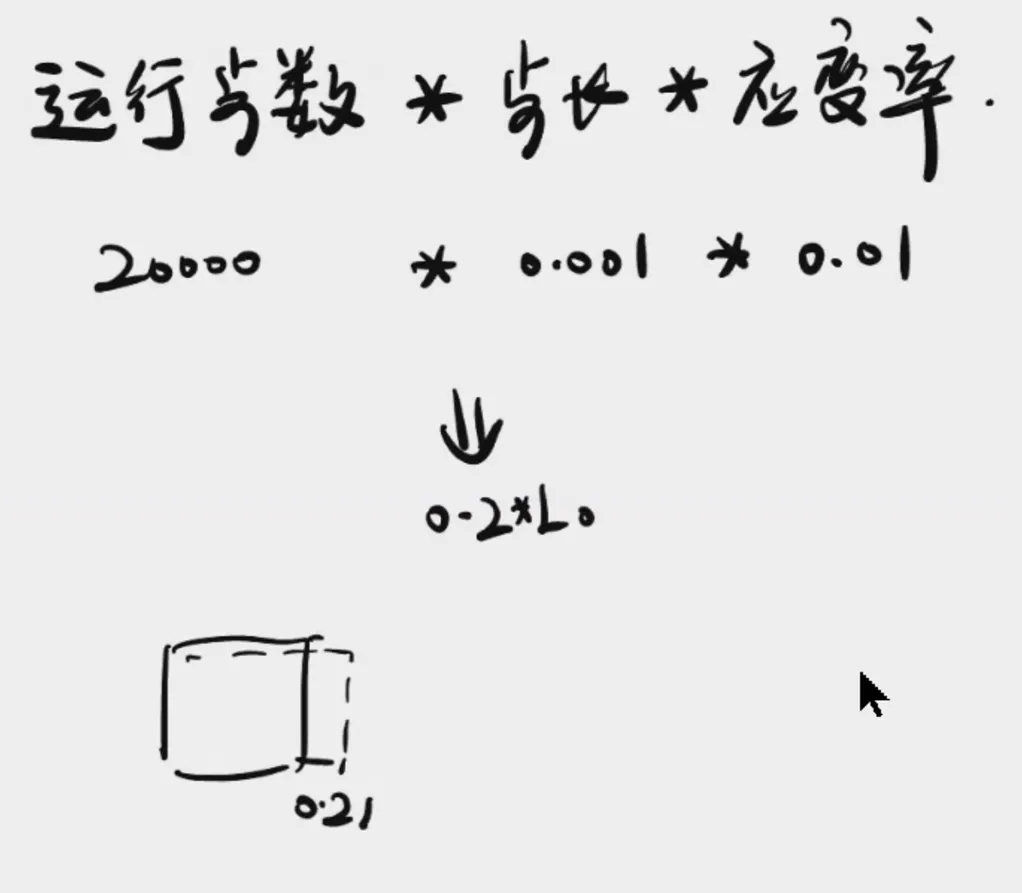 运行步数 * 步长 * 应变率.
20000 * 0.001 * 0.01
0.2*L0
0.2l